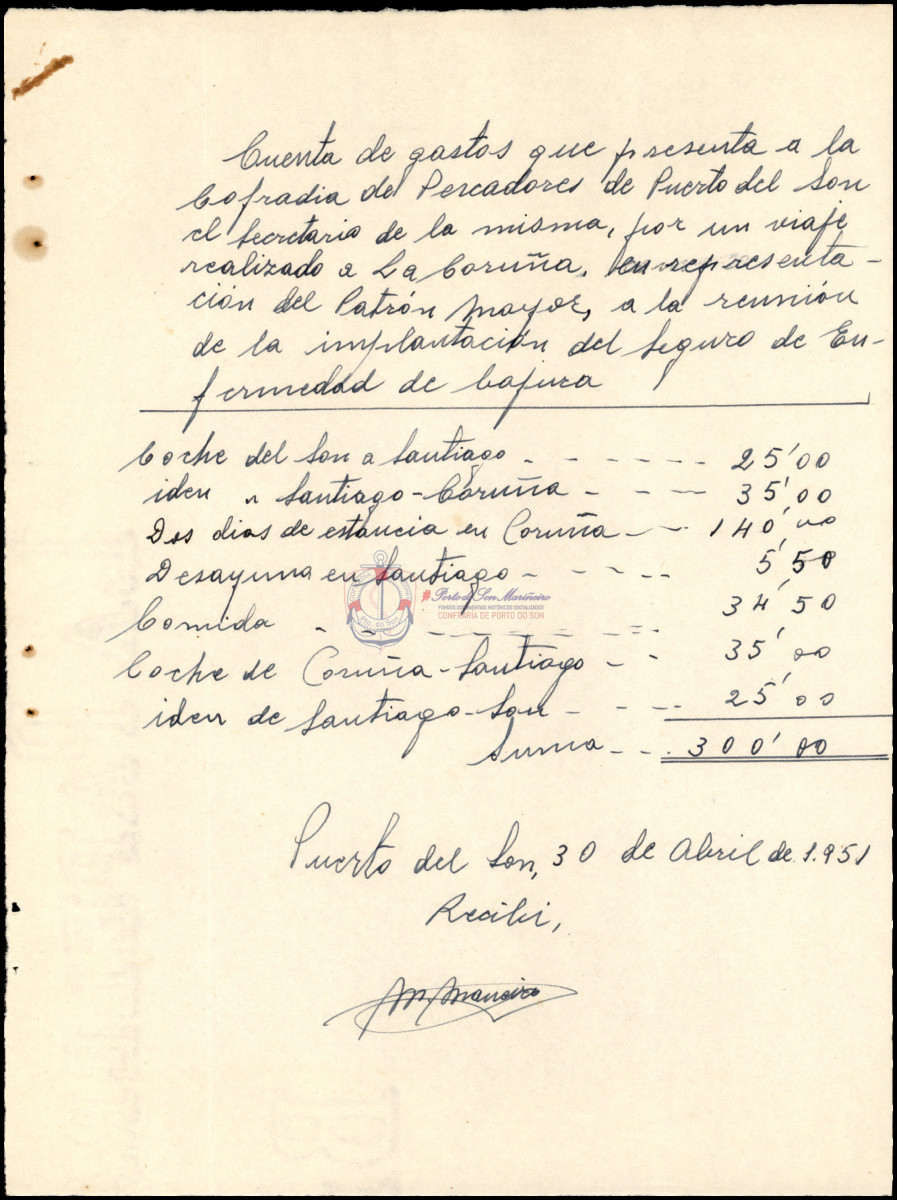 Cuenta de gastos que presenta a la
Cofradia de Pescadores de Puerto del Son
el Secretario de la misma, por un viaje
realizado a La Coruña, en representa-
ción del Patrón Mayor, a la reunión
de la implantación del Seguro de En-
fermedad de bajura
Coche del Son a Santiago - - - - - - - 25'00
iden " Santiago-Coruña - - - - 35'00
Dos dias de estancia en Coruña - - - 140'00
Desayuna en Santiago - - - - - 5'50
#Porto do Son Mariñeiro
FONDOS DOCUMENTAIS HISTÓRICOS DIXITALIZADOS
CONFRARIA DE PORTO DO SON
Comida - - - - - - - - - 34'50
Coche de Coruña-Santiago - - 35'00
iden de Santiago-Son - - - - 25'00
Suma - - - 300'00
Puerto del Son, 30 de Abril de 1.951
Recibi,